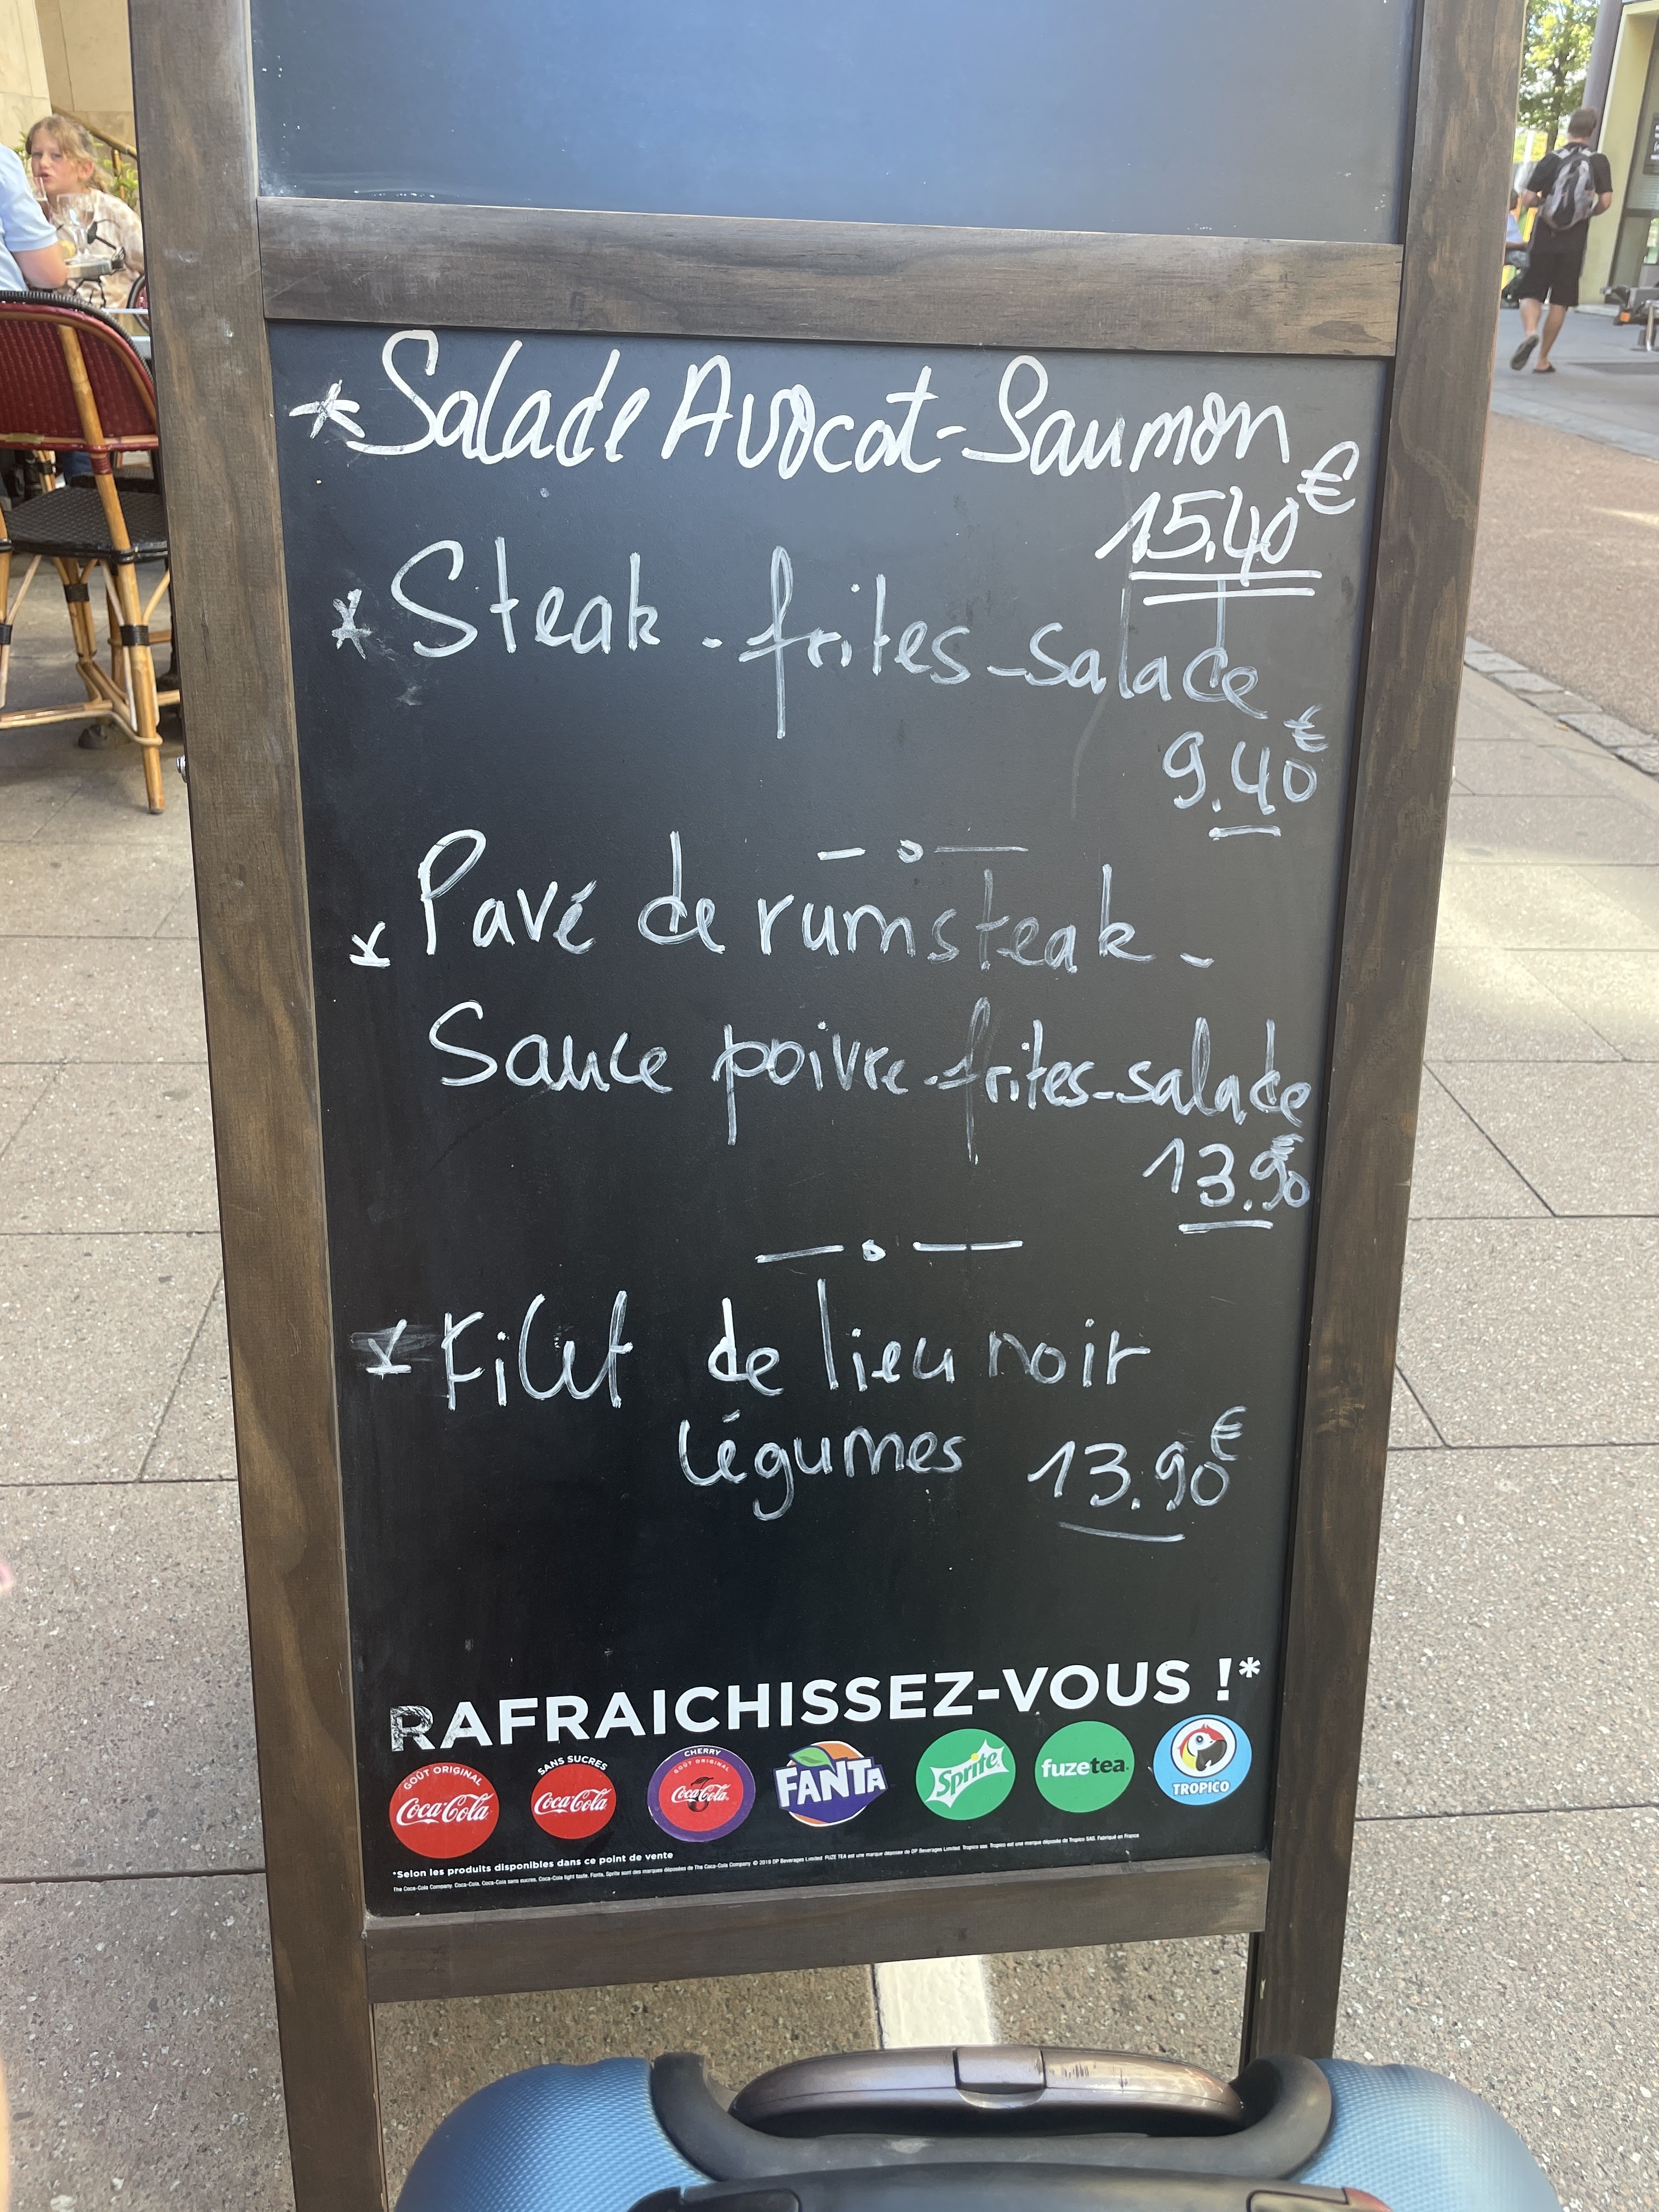 * Salade Avocat-Saumon
15.40€
* Steak - frites - salade
9.40€
— o —
* Pavé de rumsteak -
Sauce poivre - frites - salade
13.90€
— o —
* Filet de lieu noir
légumes 13.90€
RAFRAICHISSEZ-VOUS !*
GOÛT ORIGINAL Coca-Cola
SANS SUCRES Coca-Cola
CHERRY GOÛT ORIGINAL Coca-Cola
FANTA
Sprite
fuzetea
TROPICO
*Selon les produits disponibles dans ce point de vente